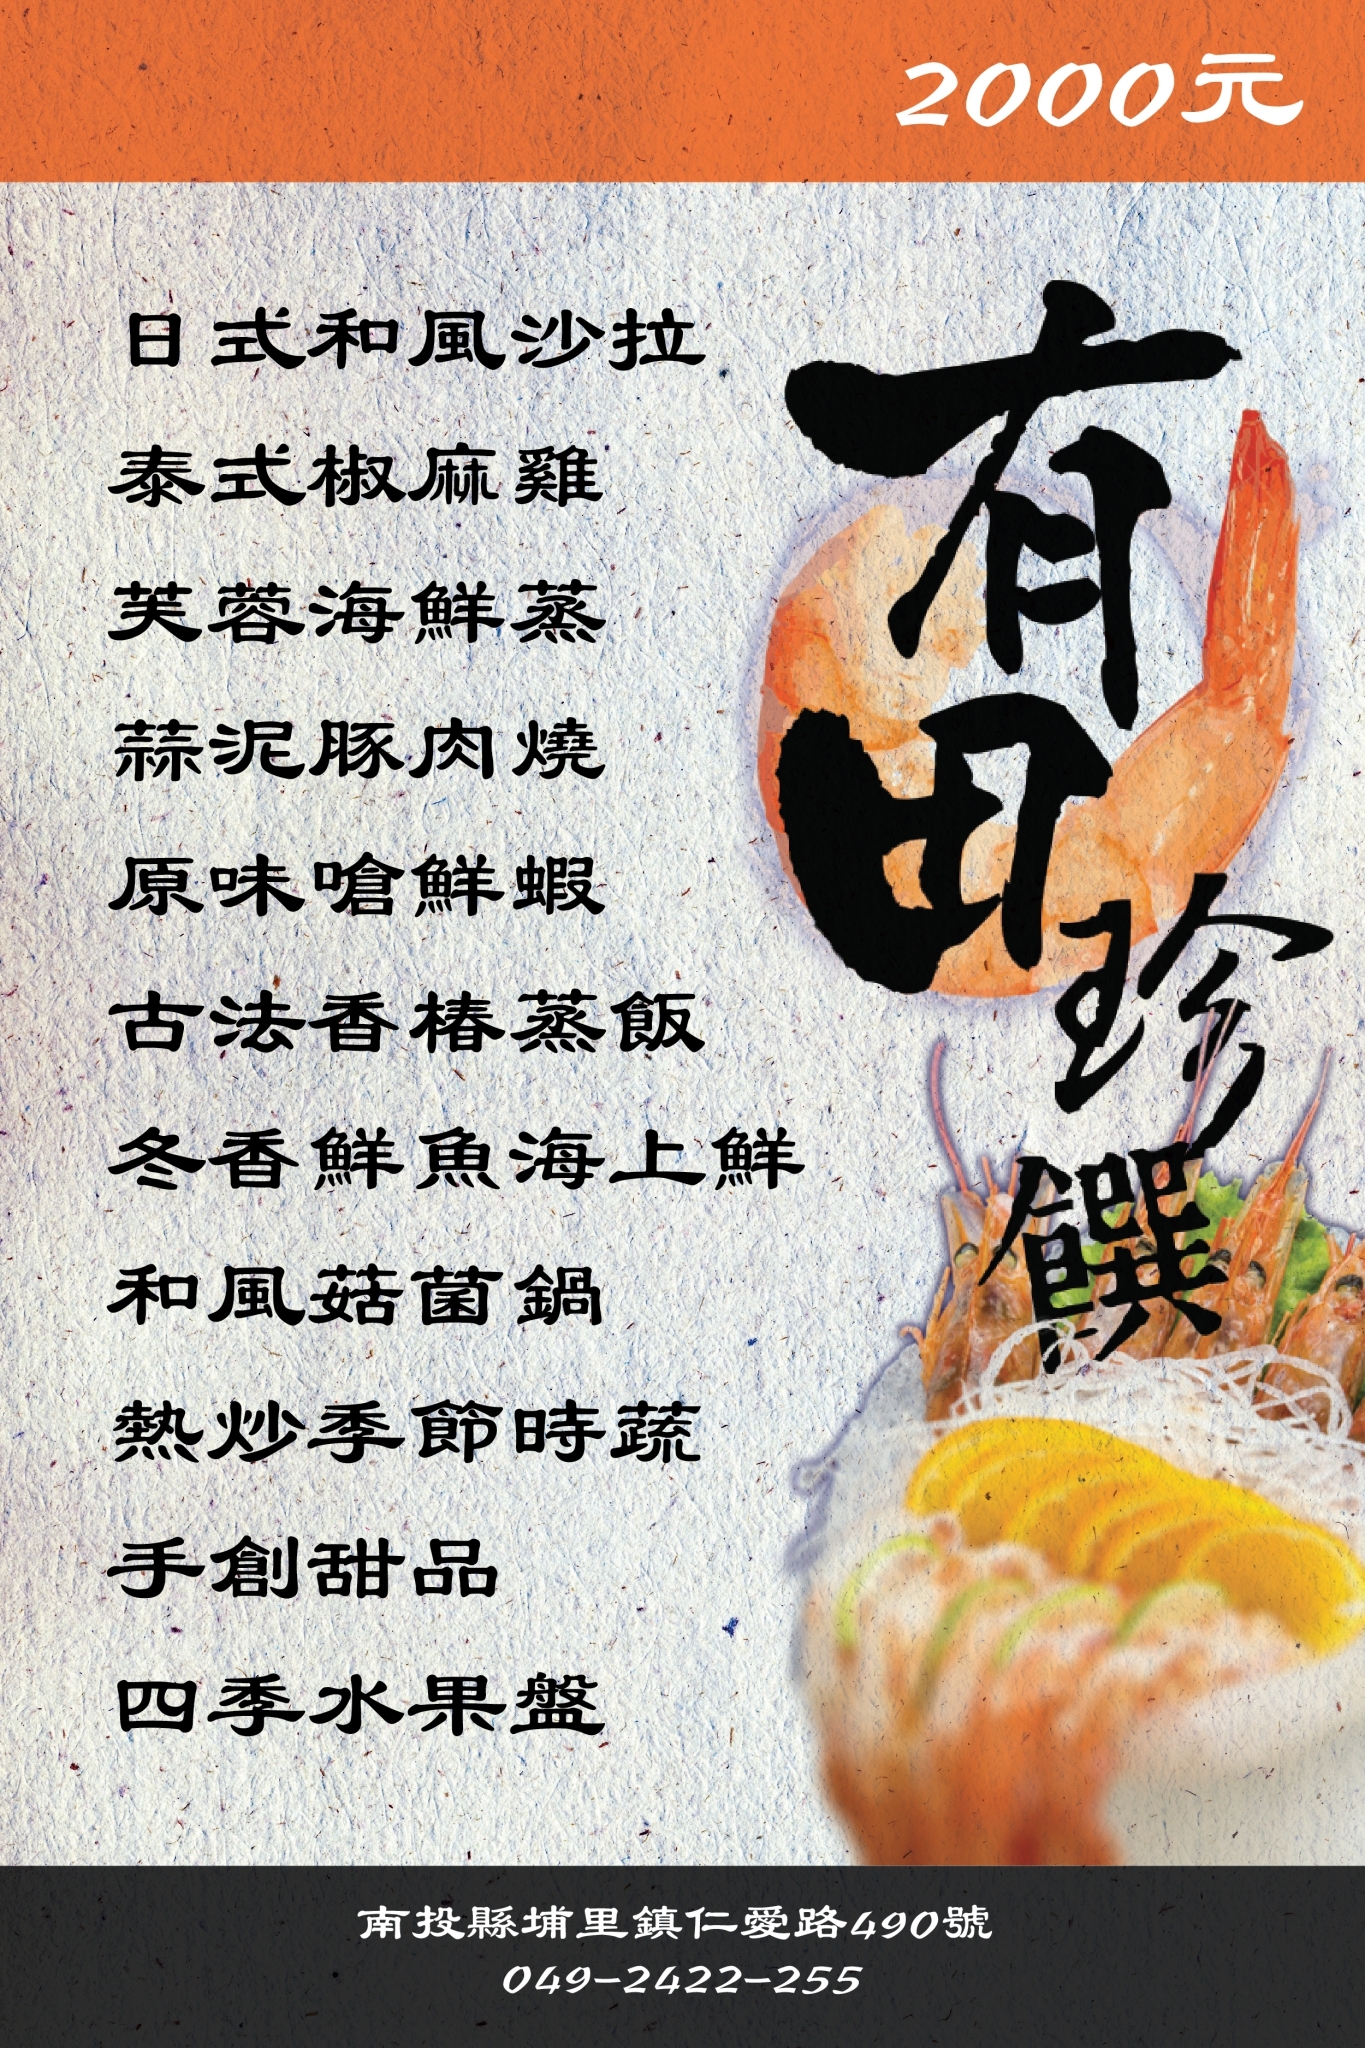 2000元
有田珍饌
日式和風沙拉
泰式椒麻雞
芙蓉海鮮蒸
蒜泥豚肉燒
原味嗆鮮蝦
古法香椿蒸飯
冬香鮮魚海上鮮
和風菇菌鍋
熱炒季節時蔬
手創甜品
四季水果盤
南投縣埔里鎮仁愛路490號
049-2422-255